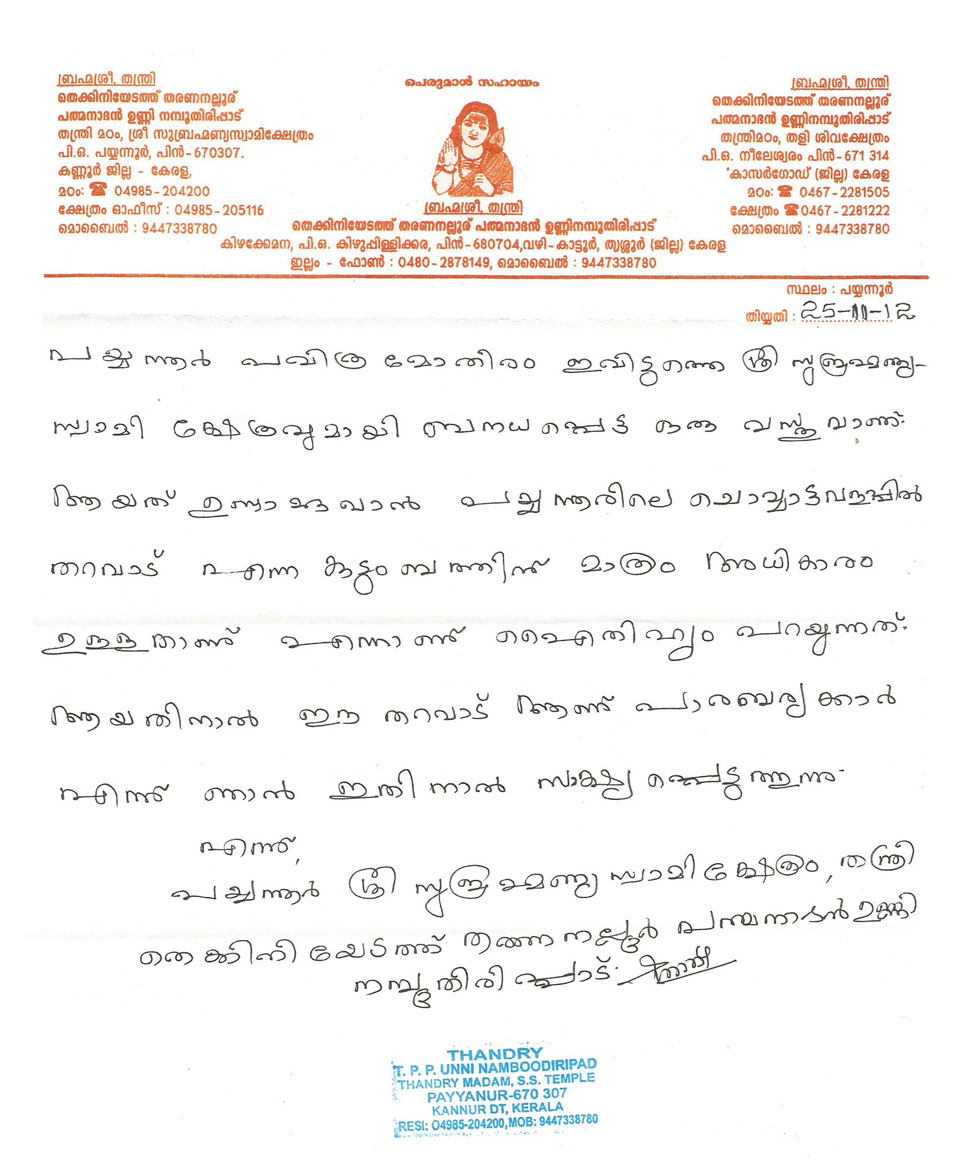 ബ്രഹ്മശ്രീ, തന്ത്രി
തെക്കിനിയേടത്ത് തരണനല്ലൂര്
പത്മനാഭൻ ഉണ്ണി നമ്പൂതിരിപ്പാട്
തന്ത്രി മഠം, ശ്രീ സുബ്രഹ്മണ്യസ്വാമിക്ഷേത്രം
പി.ഒ. പയ്യന്നൂർ, പിൻ-670307.
കണ്ണൂർ ജില്ല - കേരള,
മഠം: ☎ 04985-204200
ക്ഷേത്രം ഓഫീസ് : 04985-205116
മൊബൈൽ : 9447338780
പെരുമാൾ സഹായം
ബ്രഹ്മശ്രീ, തന്ത്രി
തെക്കിനിയേടത്ത് തരണനല്ലൂര് പത്മനാഭൻ ഉണ്ണിനമ്പൂതിരിപ്പാട്
കിഴക്കേമന, പി.ഒ. കിഴുപ്പിള്ളിക്കര, പിൻ-680704,വഴി-കാട്ടൂർ, തൃശ്ശൂർ (ജില്ല) കേരള
ഇല്ലം - ഫോൺ : 0480-2878149, മൊബൈൽ : 9447338780
ബ്രഹ്മശ്രീ, തന്ത്രി
തെക്കിനിയേടത്ത് തരണനല്ലൂര്
പത്മനാഭൻ ഉണ്ണിനമ്പൂതിരിപ്പാട്
തന്ത്രിമഠം, തളി ശിവക്ഷേത്രം
പി.ഒ. നീലേശ്വരം പിൻ-671 314
കാസർഗോഡ് (ജില്ല) കേരള
മഠം: ☎ 0467-2281505
ക്ഷേത്രം ☎0467-2281222
മൊബൈൽ : 9447338780
സ്ഥലം : പയ്യന്നൂർ
തിയ്യതി : 25-11-12
പയ്യന്നൂർ പവിത്ര മോതിരം ഇവിടുത്തെ ശ്രീ സുബ്രഹ്മണ്യ-
സ്വാമി ക്ഷേത്രവുമായി ബന്ധപ്പെട്ട ഒരു വസ്തുവാണ്.
ആയത് ഉണ്ടാക്കുവാൻ പയ്യന്നൂരിലെ ചൊവ്വാട്ടവളപ്പിൽ
തറവാട് എന്ന കുടുംബത്തിന് മാത്രം അധികാരം
ഉള്ളതാണ് എന്നാണ് ഐതിഹ്യം പറയുന്നത്.
ആയതിനാൽ ഈ തറവാട് ആണ് പാരമ്പര്യക്കാർ
എന്ന് ഞാൻ ഇതിനാൽ സാക്ഷ്യപ്പെടുത്തുന്നു.
എന്ന്,
പയ്യന്നൂർ ശ്രീ സുബ്രഹ്മണ്യ സ്വാമി ക്ഷേത്രം, തന്ത്രി
തെക്കിനിയേടത്ത് തരണനല്ലൂർ പത്മനാഭൻ ഉണ്ണി
നമ്പൂതിരിപ്പാട്.
THANDRY
T. P. P. UNNI NAMBOODIRIPAD
THANDRY MADAM, S.S. TEMPLE
PAYYANUR-670 307
KANNUR DT, KERALA
RESI: 04985-204200, MOB: 9447338780